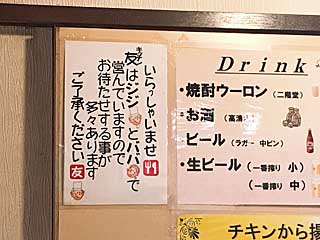 いらっしゃいませ
友はジジとババで
営んでいますので
お待たせする事が
多々あります
ご了承ください 友
Drink
・焼酎ウーロン(二階堂)
・お酒
・ビール(ラガー 中ビン)
・生ビール(一番搾り 小)
(一番搾り 中)
チキンから揚